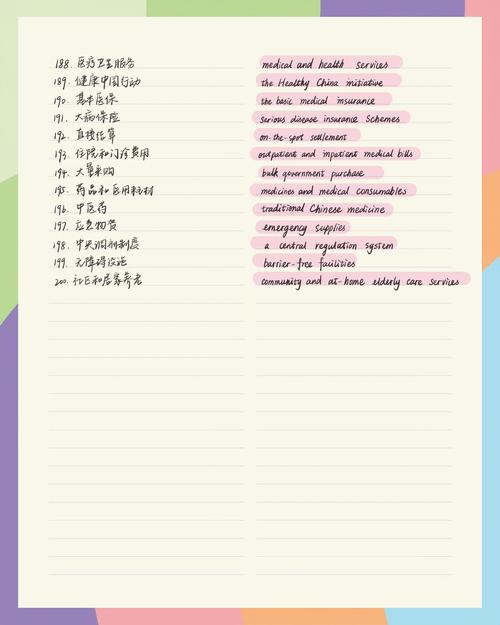 188. 医疗卫生服务 medical and health services
189. 健康中国行动 the Healthy China initiative
190. 基本医保 the basic medical insurance
191. 大病保险 serious disease insurance schemes
192. 直接结算 on-the-spot settlement
193. 住院和门诊费用 outpatient and inpatient medical bills
194. 大量采购 bulk government purchase
195. 药品和医用耗材 medicines and medical consumables
196. 中医药 traditional Chinese medicine
197. 应急物资 emergency supplies
198. 中央调剂制度 a central regulation system
199. 无障碍设施 barrier-free facilities
200. 社区和居家养老 community and at-home elderly care services